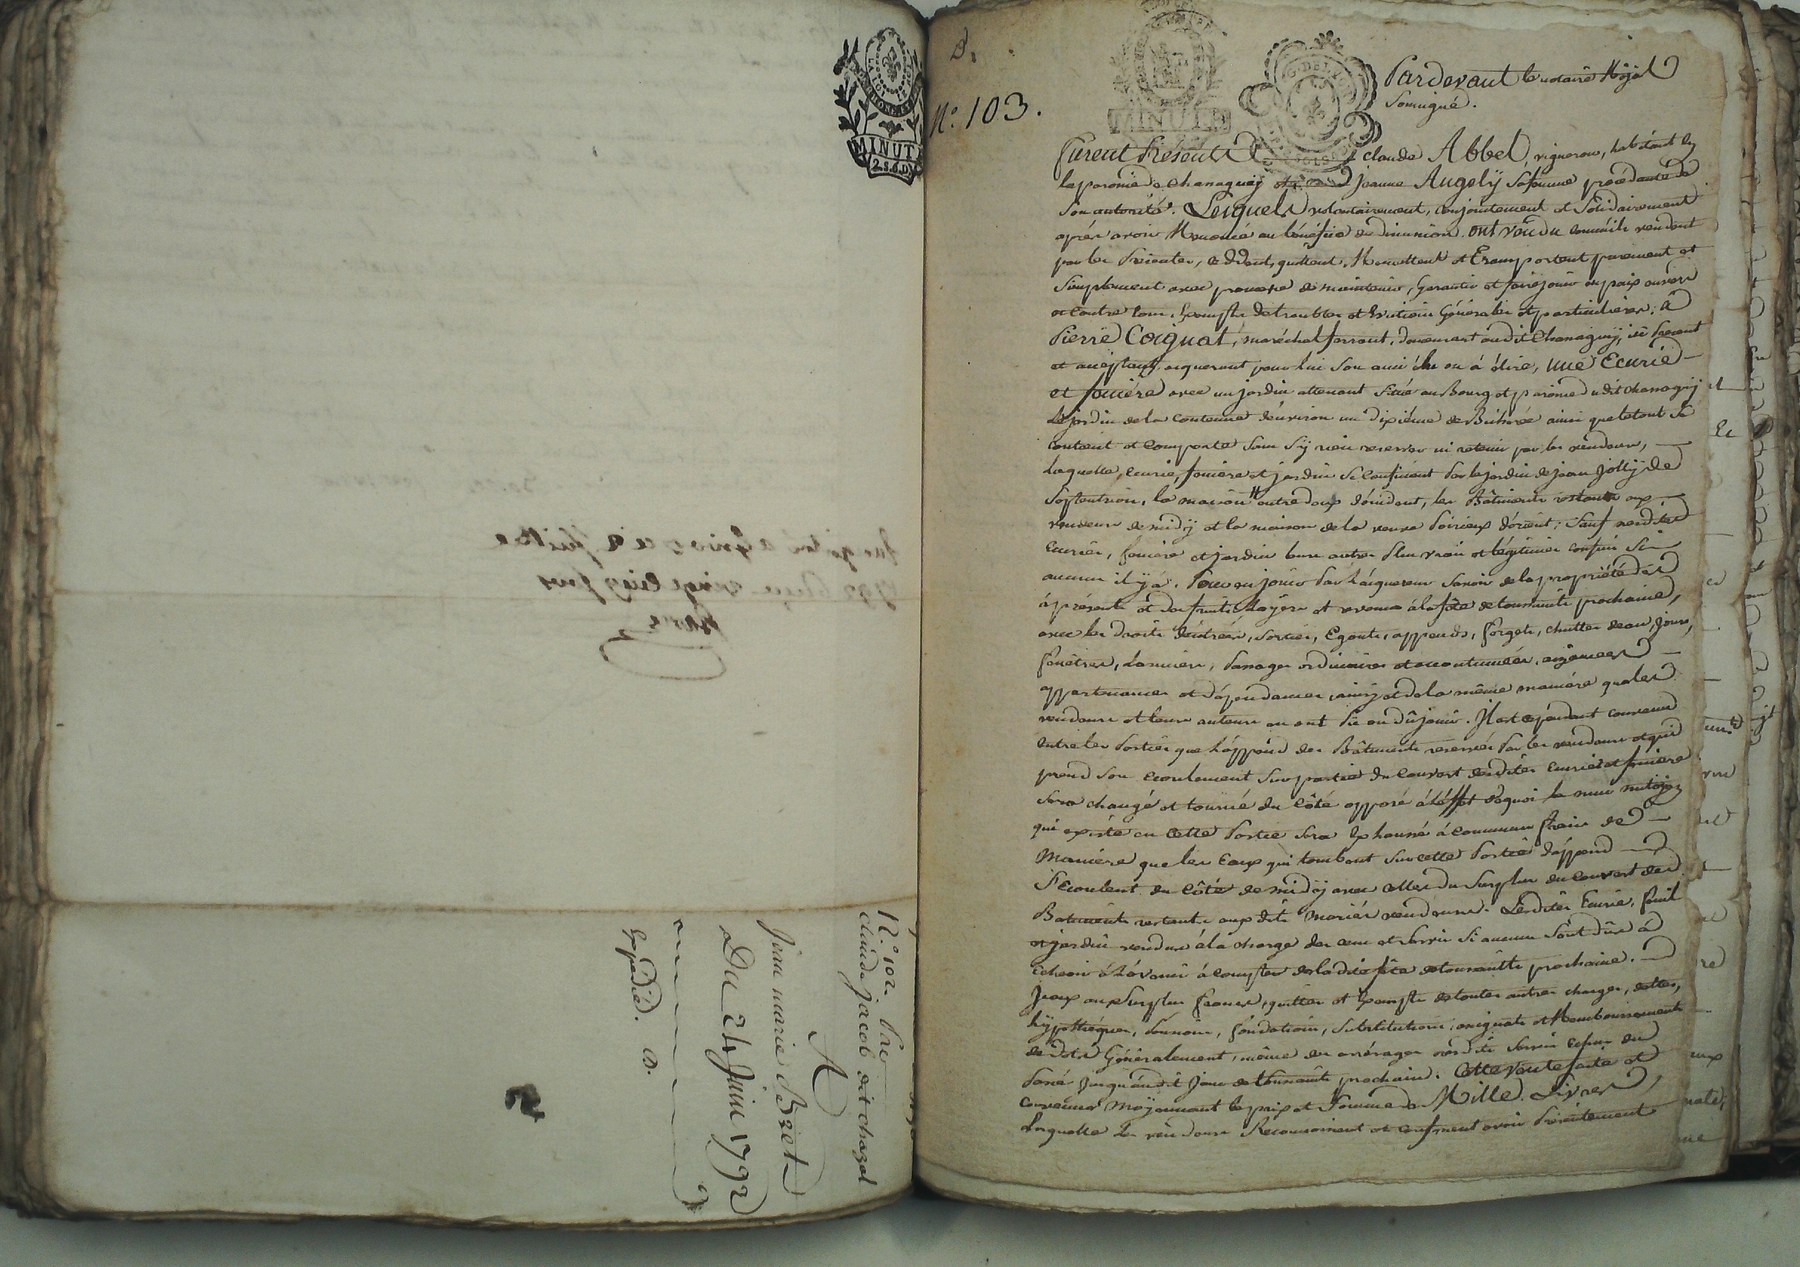 LA LOI
MINUTE
2.S.6.D.
N.º 102 Prix
claude jacob dit chazal
A
jean marie Bozet
Du 24 Juin 1792
Expedié. B.
B.
Nº. 103.
MINUTE
Pardevant le notaire Royal
Soussigné.
furent Présents claude Abbel, vigneron, habitant en
la paroisse de chanagnÿ et jeanne Angelÿ sa femme procédante de
Son autorité. Lesquels volontairement, conjointement et Solidairement
après avoir Renoncé au bénéfice de division ont vendu comme ils vendent
par les Présentes, cedent, quittent, Remettent et Transportent purement et
Simplement avec promesse de maintenir, Garantir et faire jouir en paix envers
et contre tous, Exempte de troubles et Evictions Générales et particulieres, à
Pierre Coignat, maréchal ferrant, demeurant audit Chanagnÿ, ici Present
et acceptant, acquerant pour lui Son ami élu ou à élire, une Ecurie
et feniére avec un jardin attenant Situé au Bourg et paroisse dudit chanagnÿ
le jardin de la Contenue d'environ un dixiéme de Bicherée ainsi que le tout se
contient et Comporte Sans S'ÿ rien reserver ni retenir par les vendeurs,
Laquelle Ecurie, feniére et jardin Se Confinent Par le jardin de jean jollÿ de
Septentrion, la maison d'occident, les Bâtiments restants aux
vendeurs de midÿ et la maison de la veuve Poirieux d'orient; Sauf auxdites
Ecurie, feniére et jardin leurs autres Plus vrais et légitimes confins Si
aucuns il ÿ a. Pour en jouir Par l'acquereur Savoir de la propriété dès
à présent et des fruits, loyers et revenus à la fête de toussaints prochaine,
avec les Droits d'entrées, Sorties, Egouts, appends, forgets, chuttes d'eau, jours,
fenêtres, Lumiére, Passages ordinaires et accoutumées, aisances
appartenances et dépendances ainsi et de la même maniére que les
vendeurs et leurs auteurs en ont Pû ou dû jouir. Il est cependant convenu
entre les Parties que l'append des Bâtiments reservés Par les vendeurs et qui
prend Son ecoulement Sur partie du Couvert desdites Ecurie et feniére
Sera changé et tourné du Côté opposé à l'effet de quoi le mur mitoyen
qui existe en Cette Partie Sera Exhaussé à communs frais de
Maniére que les Eaux qui tombent Sur cette Partie d'append
S'Ecoulent du Côté de midÿ avec celles du Surplus du Couvert des
Batiments restants aux dits mariés vendeurs. Lesdites Ecurie, fenil
et jardin vendus à la charge des cens et Servis Si aucuns Sont dûs à
Echeoir à L'avenir à compter de la dite fête de toussaints prochaine.
Iceux au Surplus francs, quittes et Exempts de toutes autres charges, dettes,
hÿpothéques, Pensions, fondations, Substitutions, assignats et Remboursements
de dots Généralement, même des arrérages desdits Servis et cens du
Passé jusqu'audit jour de toussaints prochain. Cette vente faite et
convenue Moÿennant le prix et Somme de Mille Livres,
Laquelle Les vendeurs Reconnoissent et confessent avoir Présentement